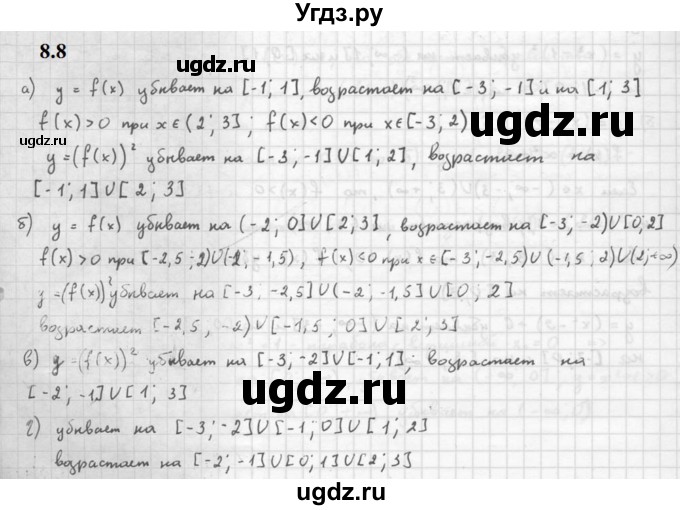 Угдз.ру
8.8
а) y = f(x) убивает на [-1; 1], возрастает на [-3; -1] и на [1; 3]
f(x)>0 при x∈(2; 3]; f(x)<0 при x∈[-3; 2)
y=(f(x))² убивает на [-3; -1]∪[1; 2], возрастает на
[-1; 1]∪[2; 3]
б) y = f(x) убивает на (-2; 0]∪[2; 3], возрастает на [-3; -2)∪[0; 2]
f(x)>0 при [-2,5; -2)∪(-2; -1,5), f(x)<0 при x∈[-3; -2,5)∪(-1,5; 2)∪(2; +∞)
y=(f(x))² убивает на [-3; -2,5]∪(-2; -1,5]∪[0; 2]
возрастает [-2,5; -2)∪[-1,5; 0]∪[2; 3]
в) y=(f(x))² убивает на [-3; -2]∪[-1; 1]; возрастает на
[-2; -1]∪[1; 3]
г) убивает на [-3; -2]∪[-1; 0]∪[1; 2]
возрастает на [-2; -1]∪[0; 1]∪[2; 3]
ugdz.ru
ugdz.ru
ugdz.ru
ugdz.ru
ugdz.ru
ugdz.ru
ugdz.ru
ugdz.ru
ugdz.ru
ugdz.ru